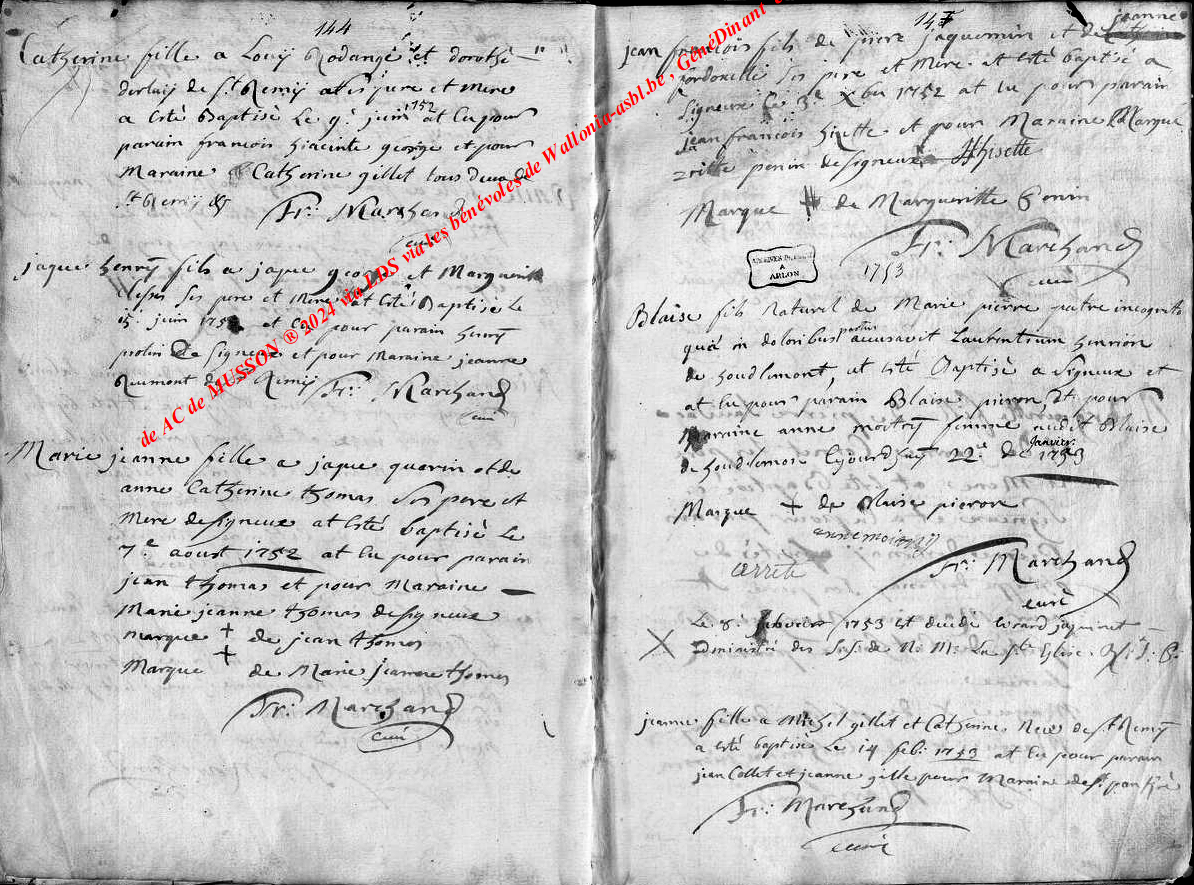 144
Catherine fille a Louij Rodange et dorothè
derluij de st Remij at es pere et Mere
a esté Baptisè Le 9e juin 1752 at eu pour
parain francois hiacinte george et pour
Maraine Catherine gillet tous deux de
st Remij
fr: Marchand
curé
jaque henrij fils a jaque george et Marguerite
ses pere et Mere at esté Baptisè Le
juin 175 et eu pour parain henrij
de Signeux et pour Maraine jeanne
Reumont de st Remij fr: Marchand
curé
Marie jeanne fille a jaque guerin et de
anne Catherine thomas Ses pere et
Mere de signeux at esté baptisè Le
7e aoust 1752 at eu pour parain
jean thomas et pour Maraine
Marie jeanne thomas de signeux
marque + de jean thomas
Marque + de Marie jeanne thomas
fr: Marchand
curé
145
jeanne
jean francois fils de pierre jaquemin et de
ses pere et Mere at esté baptisè a
Signeux Le 3e Xbre 1752 at eu pour parain
jean francois hisette et pour Maraine Marque
ritte penin de signeux JF hisette
Marque # de Margueritte Penin
fr: Marchand
curé
ARCHIVES DE L'ETAT
A
ARLON
1753
Blaise fils Naturel de Marie pierre patre incognito
quia in doloribus partus accusavit Laurentium henrion
de houdlemont, at esté Baptisè a Signeux et
at eu pour parain Blaise pieron, et pour
Maraine anne moitrij femme audit Blaise
de houdlemon ce jourdhuij 22e de janvier 1753
Marque + de Blaise pieron
anne moitrij
arreté
fr: Marchand
curé
Le 8e febvrier 1753 est decedé Gerard jaquinet
administré des S.S. de N. M. La ste Eglise. R. I. P.
jeanne fille a Michel gillet et Catherine Neu de st Remij
a esté baptisè Le 14 feb: 1753 at eu pour parain
jean Collet et jeanne gille pour Maraine de st pancrè
fr: Marchand
curé
de AC de MUSSON ® 2024 via LDS via les bénévoles de Wallonia-asbl.be, GénéDinant